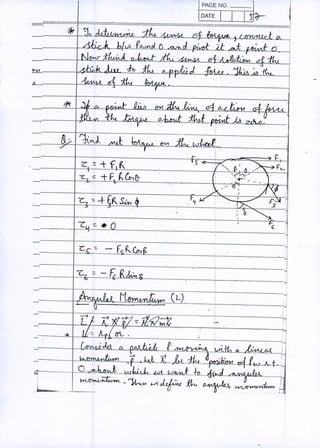 PAGE NO.
DATE 52
* To determine the sense of torque, connect a
stick b/w P and O and pivot it at point O.
Now think about the sense of rotation of the
stick due to the applied force. This is the
sense of the torque.
* If a point lies on the line of action of force
then the torque about that point is zero.
Q. Find net torque on the wheel.
τ₁ = + F₁R
τ₂ = + F₂R Cosθ
τ₃ = + F₃R Sin φ
τ₄ = 0
τ₅ = - F₅R Cosβ
τ₆ = - F₆R Sinδ
F₅ F₁
F₂
F₄ F₃
F₆
Angular Momentum (L)
Consider a particle P moving with a linear
momentum p. Let r be the position of P w.r.t.
O about which we want to find angular
momentum. Then we define the angular momentum